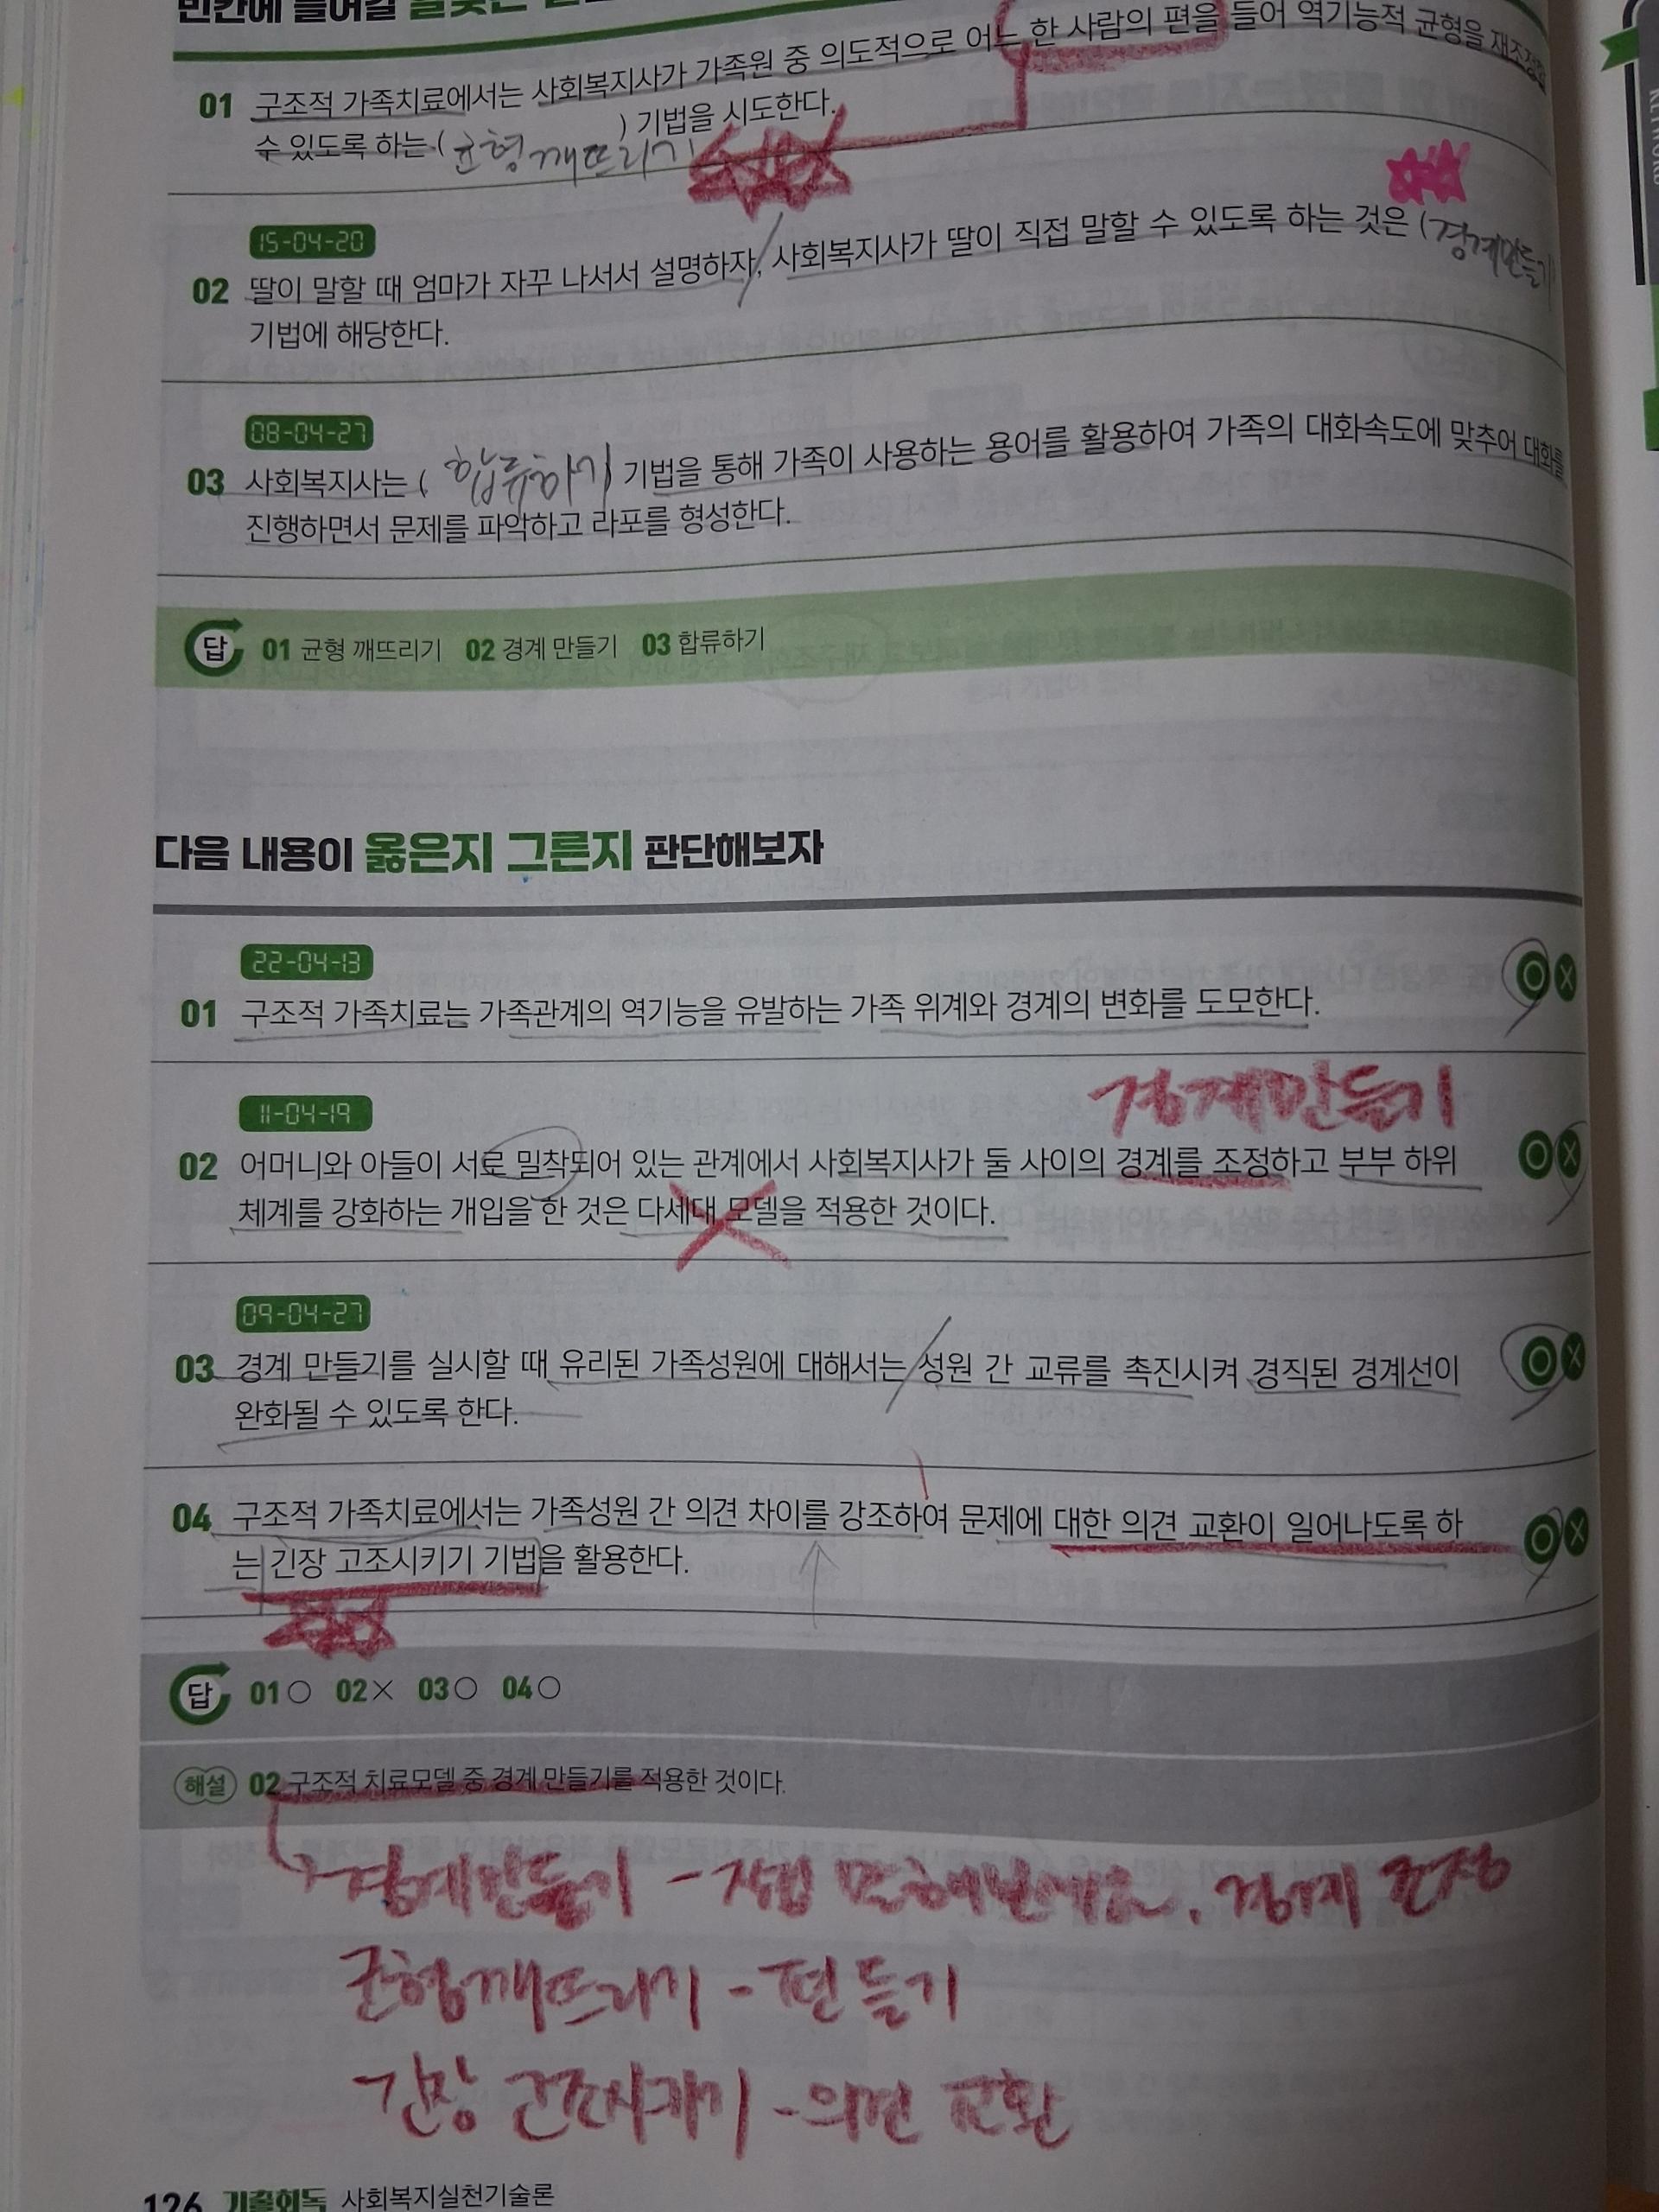 빈칸에 들어갈 알맞은
01 구조적 가족치료에서는 사회복지사가 가족원 중 의도적으로 어느 한 사람의 편을 들어 역기능적 균형을 재조정할
수 있도록 하는 (균형깨뜨리기) 기법을 시도한다.
15-04-20
02 딸이 말할 때 엄마가 자꾸 나서서 설명하자, 사회복지사가 딸이 직접 말할 수 있도록 하는 것은 (경계만들기)
기법에 해당한다.
08-04-27
03 사회복지사는 (합류하기) 기법을 통해 가족이 사용하는 용어를 활용하여 가족의 대화속도에 맞추어 대화를
진행하면서 문제를 파악하고 라포를 형성한다.
답 01 균형 깨뜨리기 02 경계 만들기 03 합류하기
다음 내용이 옳은지 그른지 판단해보자
22-04-13
01 구조적 가족치료는 가족관계의 역기능을 유발하는 가족 위계와 경계의 변화를 도모한다. O X
경계만들기
11-04-19
02 어머니와 아들이 서로 밀착되어 있는 관계에서 사회복지사가 둘 사이의 경계를 조정하고 부부 하위 O X
체계를 강화하는 개입을 한 것은 다세대 모델을 적용한 것이다.
09-04-27
03 경계 만들기를 실시할 때 유리된 가족성원에 대해서는 성원 간 교류를 촉진시켜 경직된 경계선이 O X
완화될 수 있도록 한다.
04 구조적 가족치료에서는 가족성원 간 의견 차이를 강조하여 문제에 대한 의견 교환이 일어나도록 하 O X
는 긴장 고조시키기 기법을 활용한다.
답 01 ○ 02 × 03 ○ 04 ○
해설 02 구조적 치료모델 중 경계 만들기를 적용한 것이다.
경계만들기 - 직접 말해보세요, 경계 조정
균형깨뜨리기 - 편들기
긴장 고조시키기 - 의견 교환
126 기출회독 사회복지실천기술론